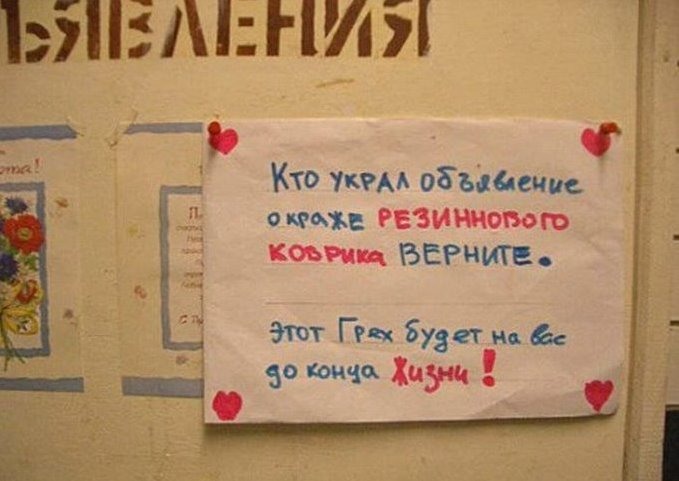 ЬЯВЛЕНИЯ
Кто украл объявление
о краже РЕЗИННОВОГО
КОВРИКА ВЕРНИТЕ.
этот Грех будет на вас
до конца Жизни!